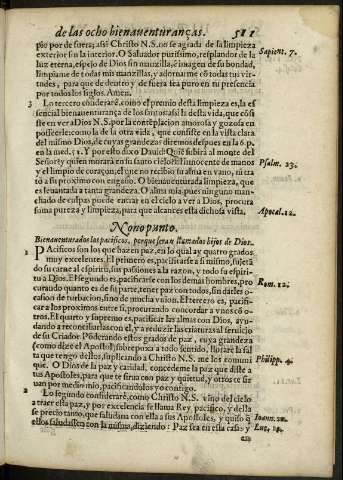 de las ocho bienauenturanças. 511
pio por de fuera; assi Christo N.S. no se agrada de la limpieza
exterior sin la interior. O Saluador purissimo, resplandor de la
luz eterna, espejo de Dios sin manzilla, è imagen de su bondad,
limpiame de todas mis manzillas, y adornarme cō todas tus vir-
tudes, para que de dentro y de fuera sea puro en tu presencia
por todos los siglos. Amen.
Sapient. 7.
3 Lo tercero cōsiderarè, como el premio desta limpieza es, la es-
sencial bienauenturança de los
desta vida, que cōsi
ste en ver a Dios N.S. por la contēplacion amorosa y gozosa en
posseerle: como la de la otra vida, que consiste en la vista clara
del mismo Dios, de cuyas grandezas diremos despues en la 6. p.
en la med. Y por esto dixo Dauid: Quiē subirà al monte del
Señor? y quien morarà en su santo cielo? el innocente de manos
y el limpio de coraçon, el que no recibio su alma en vano, ni tra
tò a su proximo con engaño. O bienauenturada limpieza, que
es leuantada a tanta grandeza. O alma mia, pues ninguno man-
chado de culpas puede entrar en el cielo a ver a Dios, procura
suma pureza y limpieza, para que alcances esta dichosa vista.
Psalm. 23.
Apocal. 12.
Nono punto.
Bienauenturados los pacificos, porque seran llamados hijos de Dios.
1 Pacificos son los que hazen paz, en lo qual ay quatro grados
muy excelentes. El primero es, pacificarse a si mismo, sujetā
do su carne al espiritu, sus passiones a la razon, y todo su espiri-
tu a Dios. El segundo es, pacificarse con los demas hombres, pro
curando quanto es de su parte, tener paz con todos, sin darles o-
casion de turbacion, sino de mucha vnion. El tercero es, pacifi-
car a los proximos entre si, procurando concordar a vnos cō o-
tros. El quarto y supremo es, pacificar las almas con Dios, ayu-
dando a reconciliarlas con el, y a reduzir las criaturas al seruicio
de su Criador Pōderando estos grados de paz, cuya grandeza
(como dize el Apostol) sobrepuxa a todo sentido, llorarè la fal
ta que tengo dellos, suplicando a Christo N.S. me los comuni
que. O Dios de la paz y caridad, concedeme la paz que diste a
tus Apostoles, para que te sirua con paz y quietud, y otros te sir
uan por medio mio, pacificandolos yo contigo.
Rom. 12.
Philipp. 4.
2 Lo segundo considerarè, como Christo N.S. vino del cielo
a traer esta paz, y por excelencia se llama Rey pacifico, y della
se precio tanto, que saludaua con ella a sus Apostoles, y quiso q̄
ellos saludassen con la misma, diziendo: Paz sea en esta casa: y
Ioann. 20.
Luc. 10.